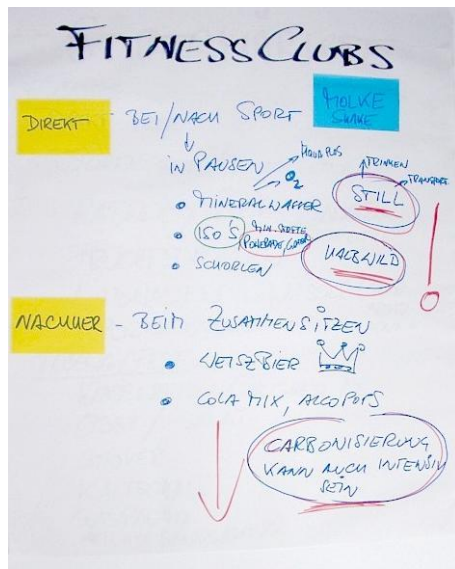 FITNESS CLUBS
DIREKT - BEI/NACH SPORT
MOLKE
SHAKE
IN PAUSEN
AQUA PLUS
O₂
• MINERALWASSER
TRINKEN
TRANSPORT
STILL
• ISO'S
MIN. STOFFE
POWERADE/
HALBWILD
• SCHORLEN
!
NACHHER - BEIM ZUSAMMENSITZEN
• WEISZBIER
• COLA MIX, ALCOPOPS
CARBONISIERUNG
KANN AUCH INTENSIV
SEIN